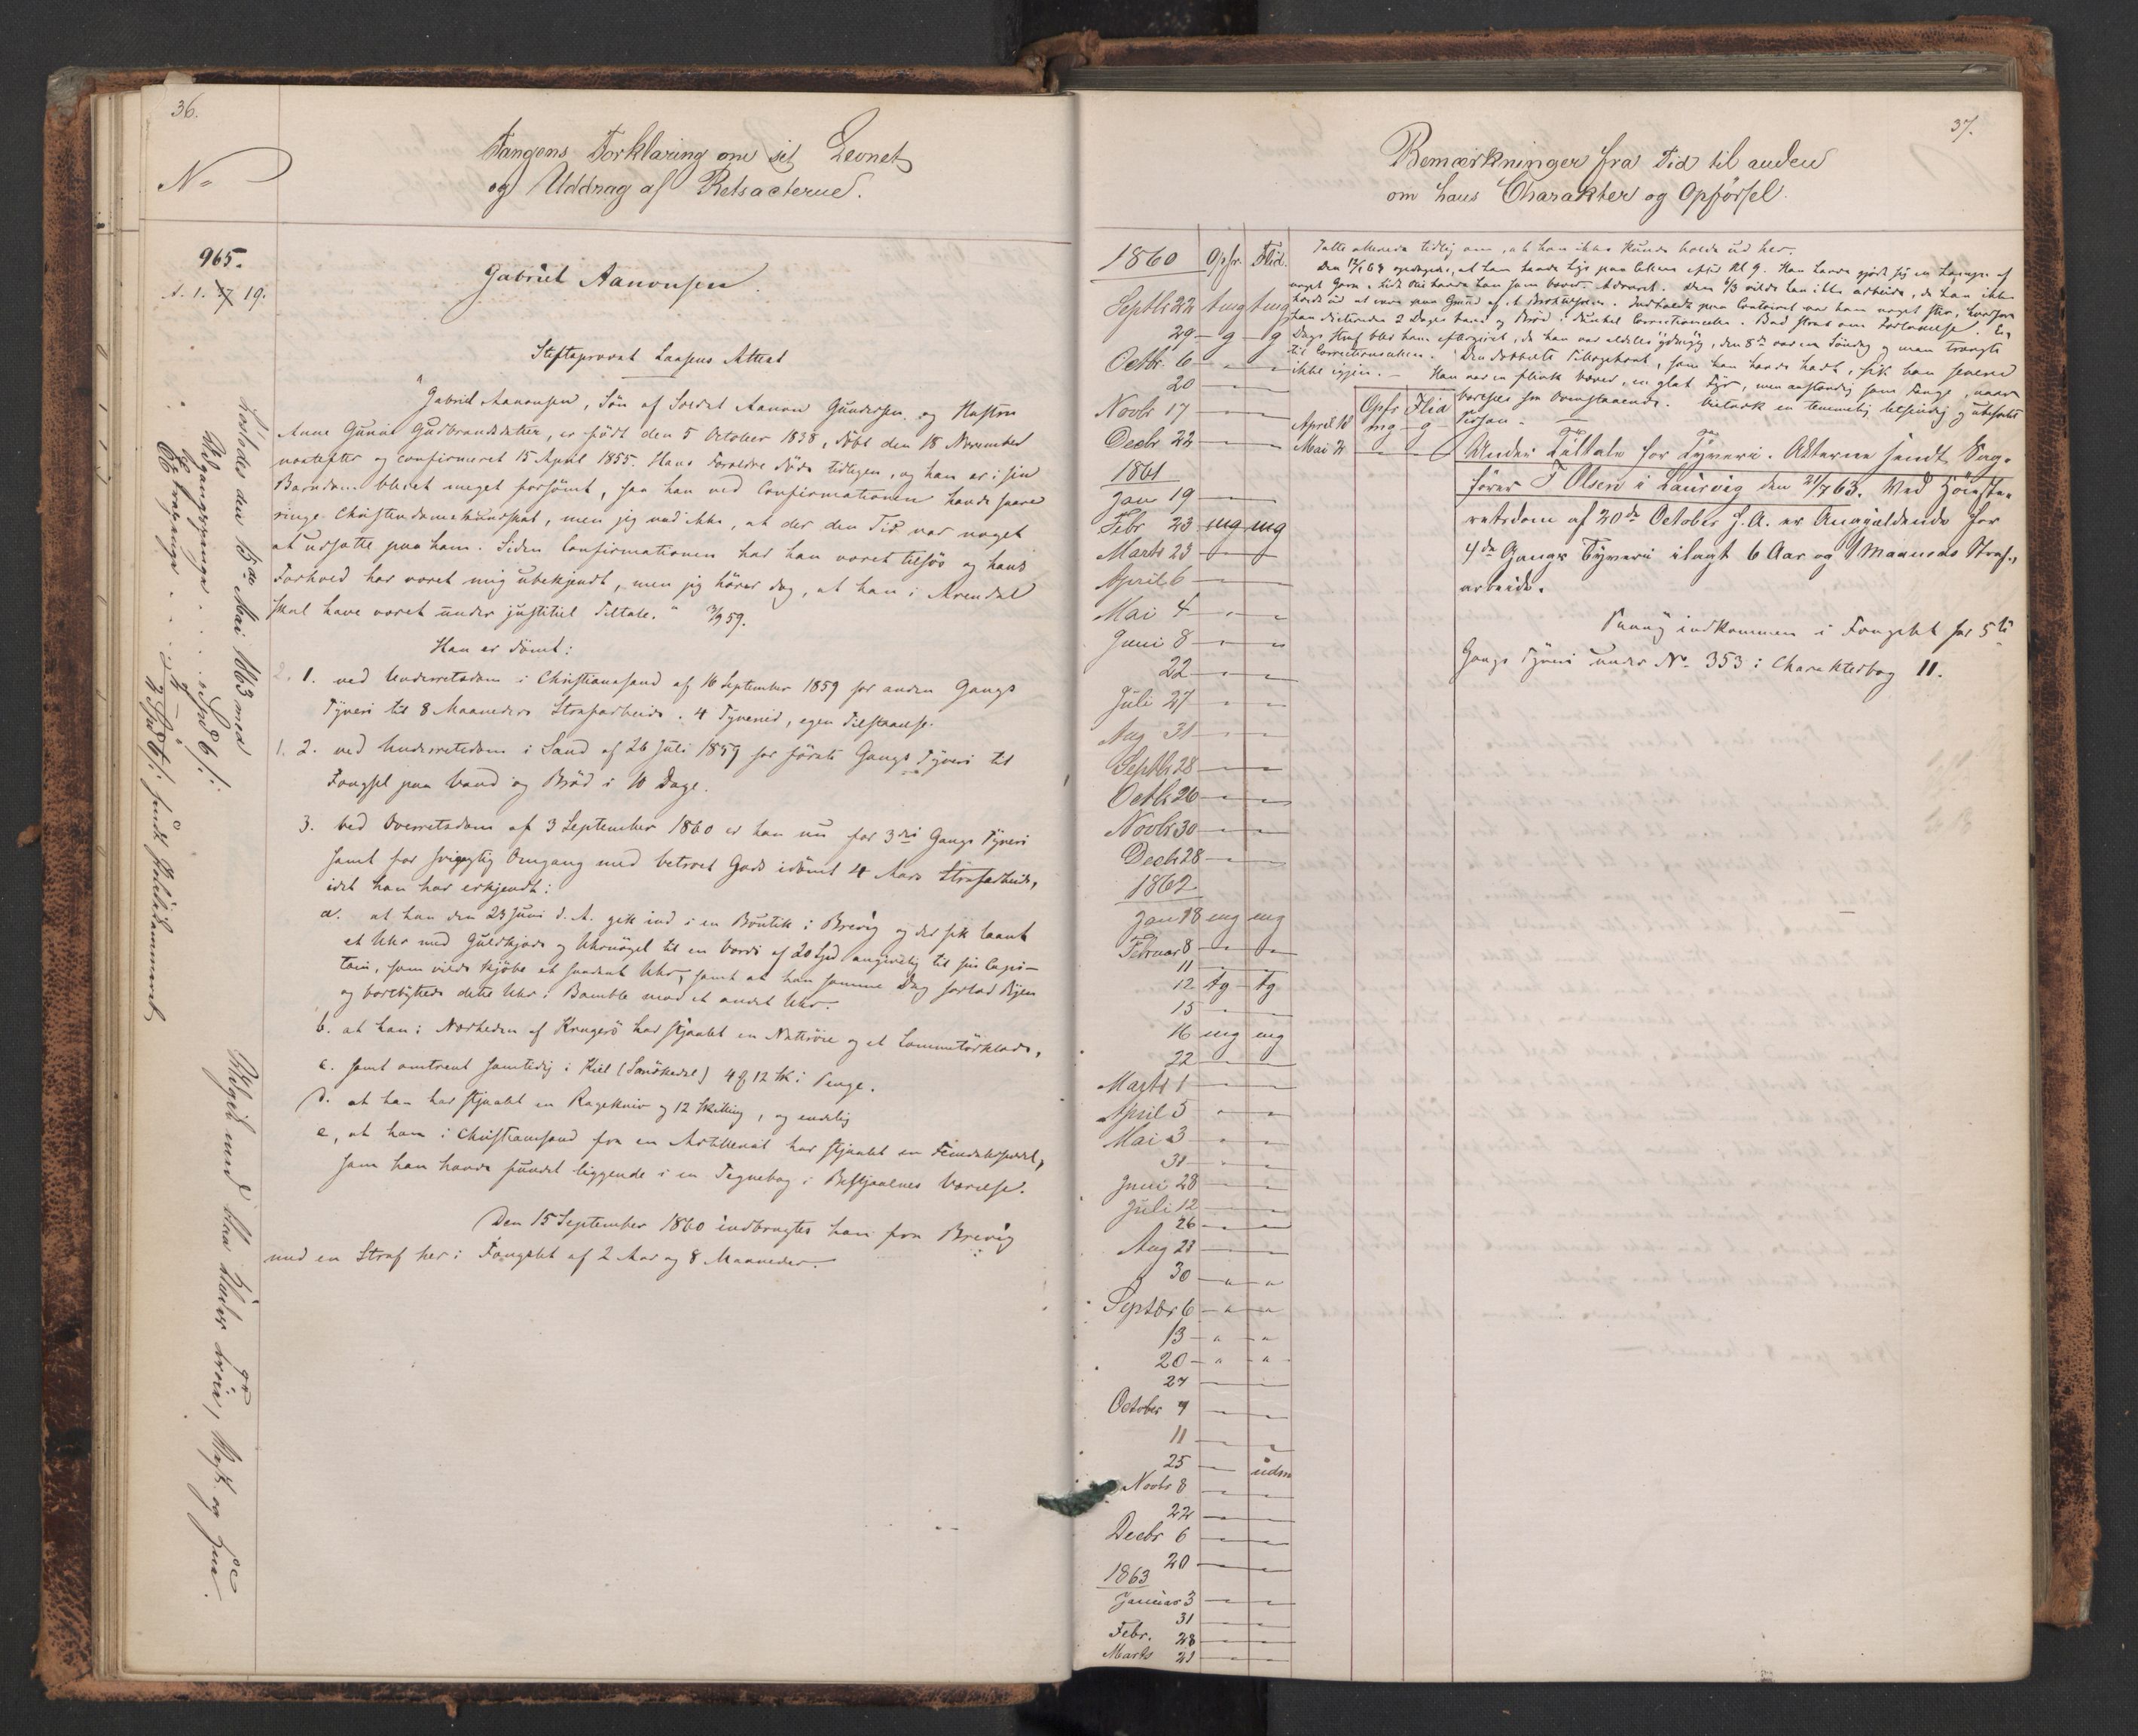 36.
No
Fangens Forklaring om sit Levnet
og Uddrag af Retsacterne.
965.
A. 1. 17 19.
Gabriel Aanonsen.
Stiftsprovst Laasens Attest
"Gabriel Aanonsen, Søn af Soldat Aanon Gundersen og Hustru
Anne Gurine Gudbrandsdatter, er født den 5 October 1838, døbt den 18 November
næstefter og confirmeret 15 April 1855. Hans Forældre døde tidligen, og han er i sin
Barndom blevet meget forsømt, saa han ved Confirmationen havde saare
ringe Christendomskundskab, men jeg ved ikke, at der den Tid var noget
at udsætte paa ham. Siden Confirmationen har han været tilsøs og hans
Forhold har været mig ubekjendt, men jeg hører dog, at han i Arendal
skal have været under justitiel Tiltale."
Han er dømt:
2. 1. ved Underretsdom i Christianssand af 16 September 1859 for anden Gangs
Tyveri til 8 Maaneders Strafarbeide. 4 Tyverier, egen Tilstaaelse.
1. 2. ved Underretsdom i Sand af 26 Juli 1859 for første Gangs Tyveri til
Fængsel paa Vand og Brød i 10 Dage.
3. Ved Overretsdom af 3 September 1860 er han nu for 3die Gangs Tyveri
samt for svigagtig Omgang med betroet Gods idømt 4 Aars Strafarbeide,
idet han har erkjendt:
a. at han den 23 Juni d. A. gik ind i en Boutik i Brevig og der fik laant
et Uhr med Guldkjæde og Uhrnøgel til en Værdi af 20 Spd angivelig til sin Capi-
tain, som vilde kjøbe et saadant Uhr, samt at han samme Dag forlod Byen
og bortbyttede dette Uhr i Bamble mod et andet Uhr.
b. at han i Nærheden af Kragerø har stjaalet en Nattrøie og et Lommetørklæde,
c. samt omtrent samtidig i Kiel (Sannøkedal) 4 12 sk i Penge.
d. at han har stjaalet en Ragekniv og 12 Skilling, og endelig
e, at han i Christianssand fra en har stjaalet en Femdalerseddel,
som han havde fundet liggende i en Tegnebog i Bestjaalnes Værelse.
Den 15 September 1860 indbragtes han fra Brevig
med en Straf her i Fængslet af 2 Aar og 8 Maaneder.
Løslodes den 15de Mai 1863 med
Udgangspenge . . . Spd 6 ,
sendt Politikammeret
Udgik med blaa Klædes Trøie, Vest og Hue.
37.
Bemærkninger fra Tid til anden
om hans Charakter og Opførsel.
1860 Opfr. Flid.
Septbr 22 tmg tmg
29 - g - g
Octbr. 6 - " - "
20 - " - "
Novbr 17 - " - "
Decbr 22 - " - "
1861
Jan 19 - " - "
Febr 23 mg mg
Marts 23 - " - "
April 6 - " - "
Mai 4 - " - "
Juni 8 - " - "
22 - " - "
Juli 27 - " - "
Aug 31 - " - "
Septbr 28 - " - "
Octbr 26 - " - "
Novbr 30 - " - "
Decbr 28 - " - "
1862
Jan 18 mg mg
Februar 8 - " - "
11 - " - "
12 tg - tg
15 - " - "
16 mg mg
22 - " - "
Marts 1 - " - "
April 5 - " - "
Mai 3 - " - "
31 - " - "
Juni 28 - " - "
Juli 12 - " - "
26 - " - "
Aug 23 - " - "
30 - " - "
Septbr 6 - " - "
13 - " - "
20 - " - "
27 - " - "
October 9 - " - "
11 - " - "
25 - " - udm
Novbr 8 - " - "
22 - " - "
Decbr 6 - " - "
20 - " - "
1863
Januar 3 - " - "
31 - " - "
Febr. 28 - " - "
Marts 21 - " - "
Opfr Flid
April 18 mg - g
Mai 2 - " - "
Talte allerede tidlig om, at han ikke kunde holde ud her.
Den opdagedes, at han havde Lys paa Cellen efter Kl 9. Han havde gjort sig en Lampe af
noget Garn. Advaret. Den 6/3 vilde han ikke arbeide, da han ikke
holdt ud at være paa Grund af . Indkaldt paa Contoiret var han noget stor, hvorfor
han dicteredes 2 Dages Vand og Brød i dunkel Correctionscelle. Bad strax om Forladelse. En
Dags Straf blev ham eftergivet, da han var aldeles ydmyg, den 8de var en Søndag og man trængte
til Correctionscellen. Den dobbelte , som han havde havt, fik han senere
ikke igjen. - Han var en flink Væver, en glat Fyr, men anstændig som Fange, naar
bortsees fra Ovenstaaende. Vistnok en temmelig letsindig og ubefæstet
Person.
Under Tiltale for Tyveri. Akterne sendt Sag-
fører F Olsen i Laurvig den 21/7 63. Ved Høieste-
retsdom af 20de October f. A. er Angjældende for
4de Gangs Tyveri ilagt 6 Aar og 9 Maaneders Straf-
arbeide.
Paany indkommen i Fængslet for 5te
Gangs Tyveri under No 353 i Charakterbog 11.